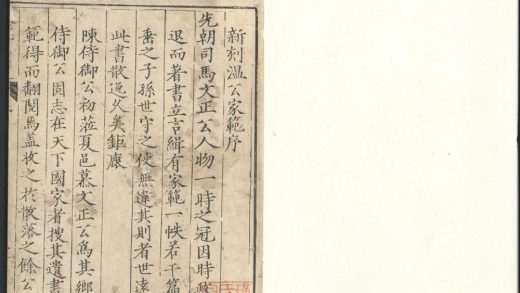 新刻溫公家範序
先朝司馬文正公人物一時之冠因時政
退而著書立言緝有家範一帙若干篇
垂之子孫世守之使無違其則者世遠
此書散逸久矣鉅鹿
陳侍御公初蒞夏邑慕文正公為其鄉
侍御公固志在天下國家者搜其遺書
範得而翻閱焉蓋收之於散落之餘公